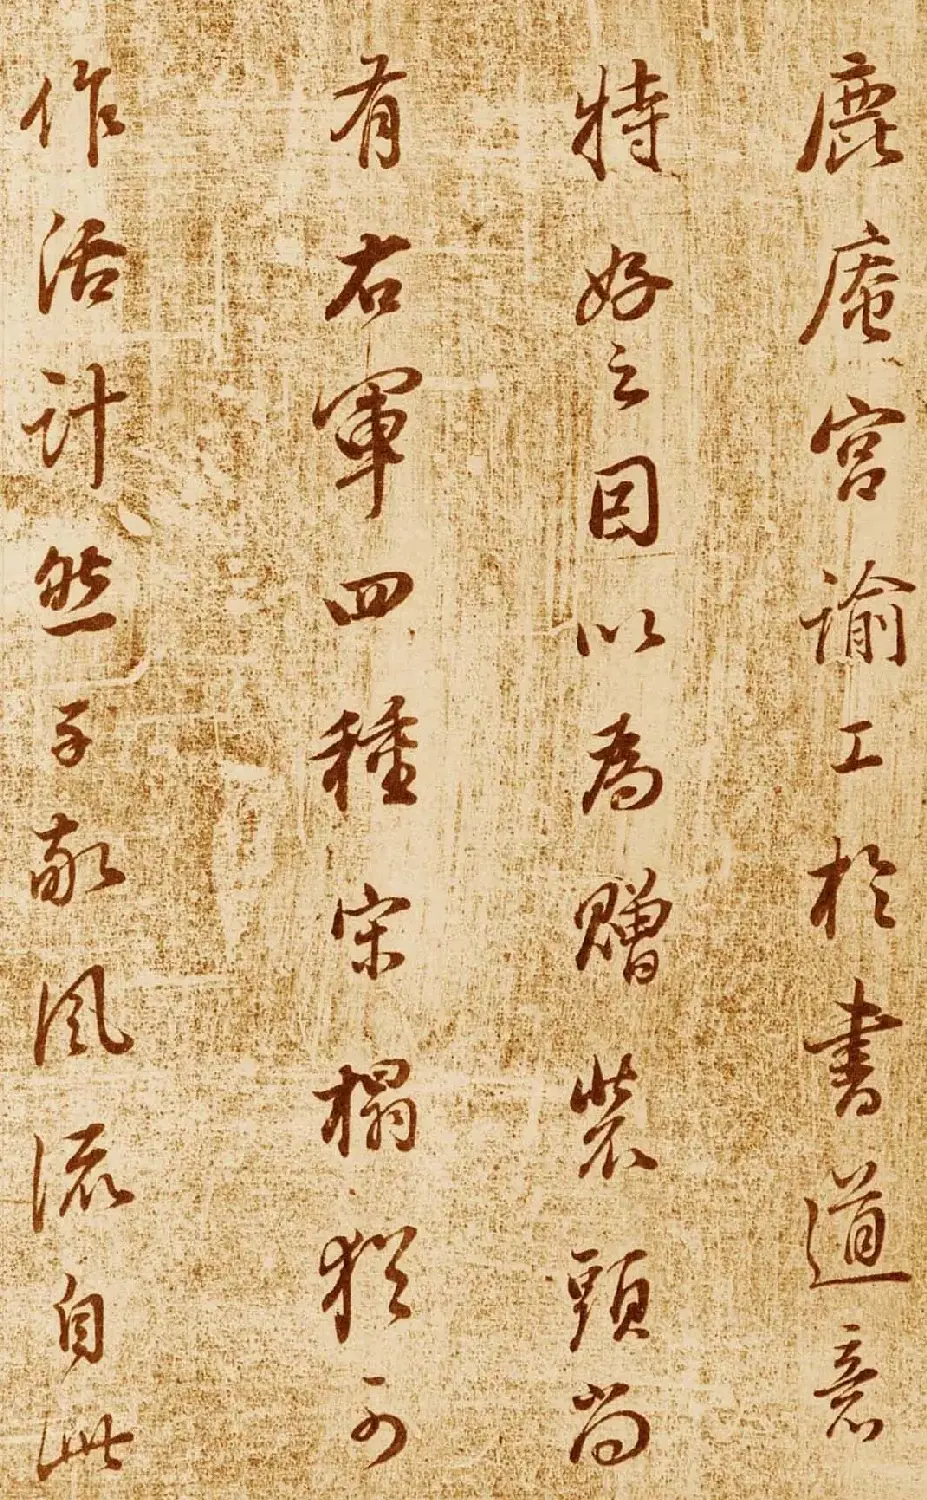 鹿庵宮諭工於書道意
特好之因以為贈裝頭尚
有右軍四種宋榻猶可
作活計然子敬風流自此